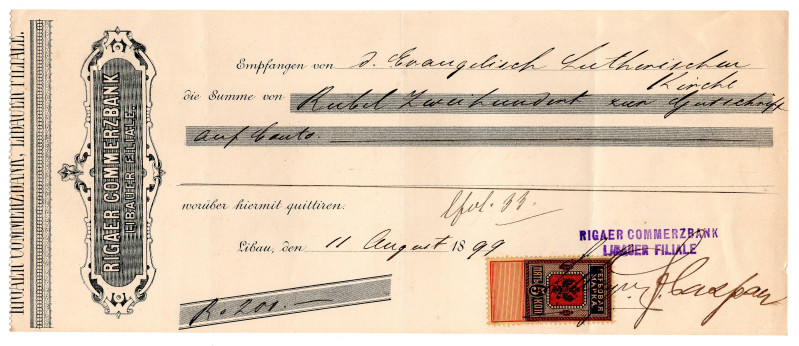 RIGAER COMMERZBANK, LIBAUER FILIALE.
RIGAER COMMERZBANK
LIBAUER FILIALE.
Empfangen von d. Evangelisch Lutherischen
Kirche
die Summe von Rubel Zweihundert zur Gutschrift
auf Conto.
worüber hiermit quittiren.
Libau, den 11 August 1899
RIGAER COMMERZBANK
LIBAUER FILIALE
R. 200.
ГЕРБОВАЯ
МАРКА
5